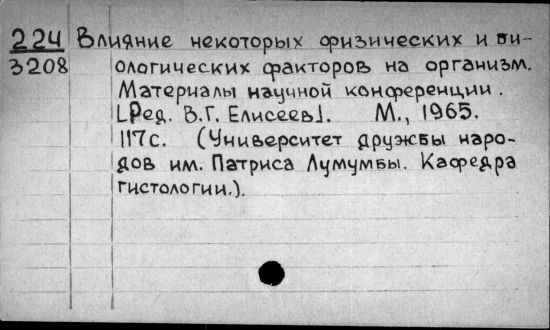 224 Влияние некоторых физических и би-
3208 ологических факторов на организм.
Материалы научной конференции.
[Ред. В.Г. Елисеев]. М., 1965.
117с. (Университет дружбы наро-
дов им. Патриса Лумумбы. Кафедра
гистологии.).